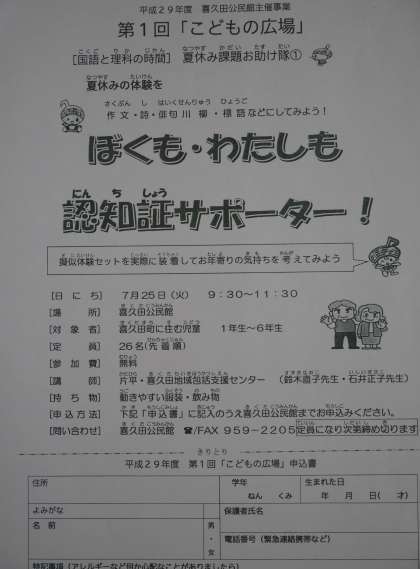 平成29年度 喜久田公民館主催事業
第1回「こどもの広場」
[国語と理科の時間] 夏休み課題お助け隊①
夏休みの体験を
作文・詩・俳句川柳・標語などにしてみよう!
ぼくも・わたしも
認知証サポーター!
擬似体験セットを実際に装着してお年寄りの気持ちを考えてみよう
[日にち] 7月25日(火) 9:30~11:30
[場所] 喜久田公民館
[対象者] 喜久田町に住む児童 1年生~6年生
[定員] 26名(先着順)
[参加費] 無料
[講師] 片平・喜久田地域包括支援センター (鈴木直子先生・石井正子先生)
[持ち物] 動きやすい服装・飲み物
[申込方法] 下記「申込書」に記入のうえ喜久田公民館までお申込みください。
[問い合わせ] 喜久田公民館 ☎/FAX 959-2205 定員になり次第締め切ります
きりとり
平成29年度 第1回「こどもの広場」申込書
住所 学年 ねん くみ 生まれた日 年 月 日( 才)
よみがな 保護者氏名
名前 男・女
電話番号(緊急連絡携帯など)
特記事項(アレルギーなど何か心配なことがありましたら)